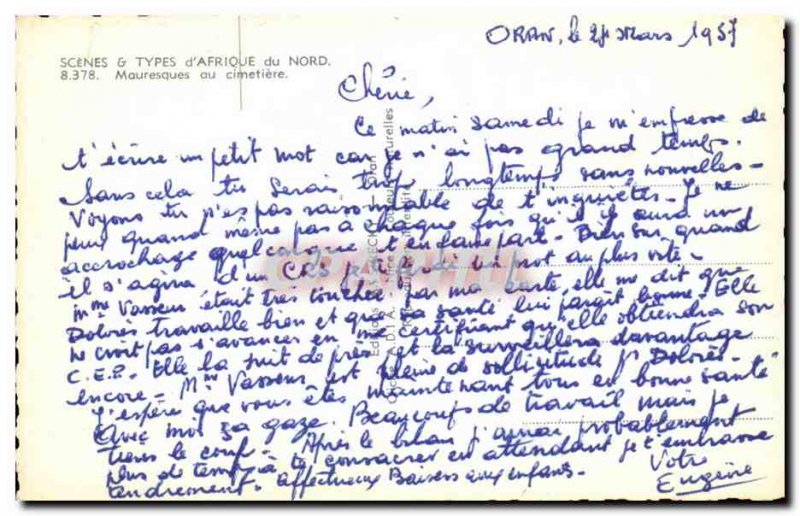 ORAN, le 2 Mars 1957
SCÈNES & TYPES d'AFRIQUE du NORD.
8.378. Mauresques au cimetière.
Chérie,
Ce matin samedi je m'empresse de
t'écrire un petit mot car je n'ai pas grand temps.
Sans cela tu serais trop longtemps sans nouvelles -
Voyons tu n'es pas raisonnable de t'inquiéter - Je ne
peux quand même pas à chaque fois qu'il y aura un
accrochage quelconque t'en faire part - Bien sûr quand
il s'agira d'un cas je ferai un mot au plus vite -
Mme Vasseur était très touchée par ma carte, elle me dit que
Dolorès travaille bien et que sa santé lui parait bonne - Elle
ne croit pas s'avancer en me certifiant qu'elle obtiendra son
C.E.P. - Elle la suit de près et la surveillera davantage
encore - Mme Vasseur est pleine de sollicitude pr Dolorès -
J'espère que vous êtes maintenant tous en bonne santé
Avec moi ça gaze. Beaucoup de travail mais je
tiens le coup - Après le bilan j'aurai probablement
plus de temps à te consacrer en attendant je t'embrasse
tendrement - Affectueux Baisers aux enfants -
Votre
Eugène